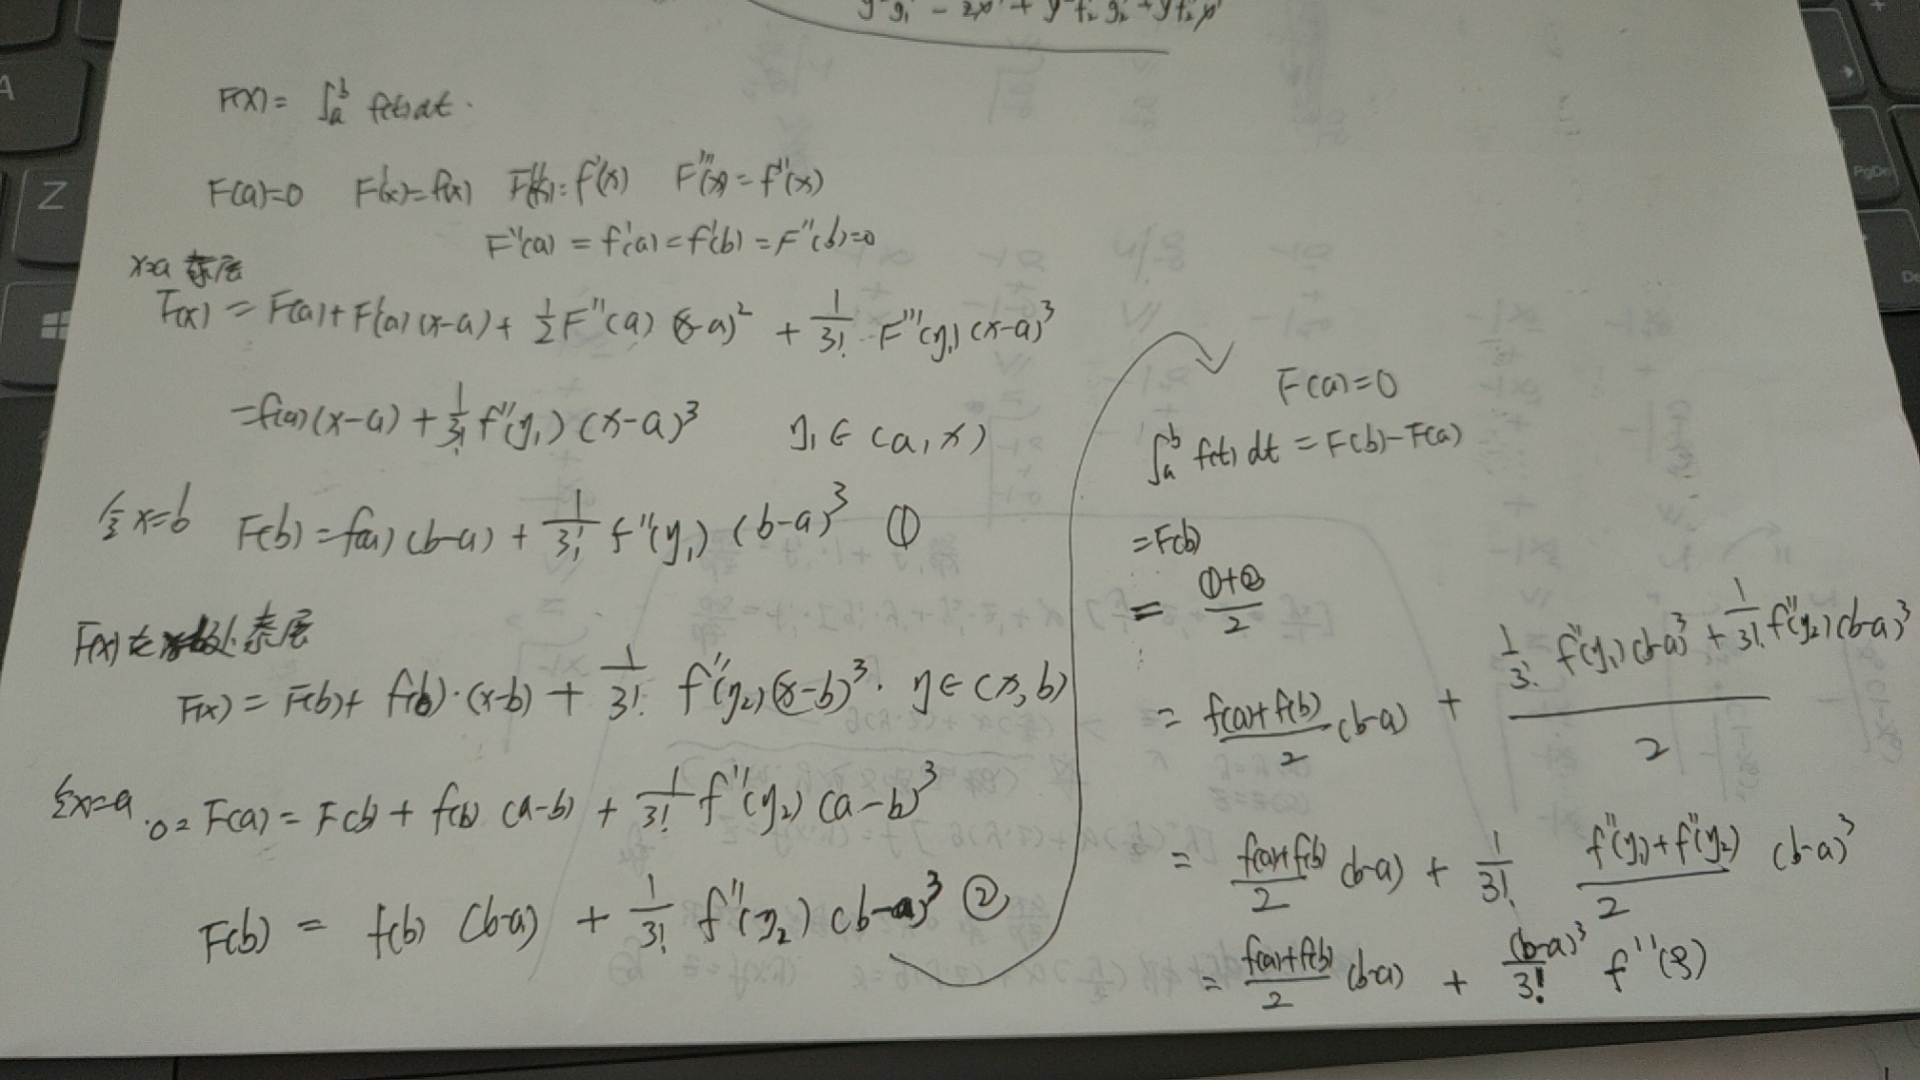 y² g₁' - 2x' + y² f₂' g₂' + y f₂' x'
F(x) = ∫_a^b f(t) dt .
F(a)=0 F'(x)=f(x) F''(x)=f'(x) F'''(x)=f''(x)
F''(a) = f'(a) = f'(b) = F''(b)=0
x=a 泰展
F(x) = F(a)+F'(a)(x-a)+ 1/2 F''(a) (x-a)² + 1/3! F'''(η₁)(x-a)³
=f(a)(x-a) + 1/3! f''(η₁)(x-a)³ η₁ ∈ (a,x)
令x=b F(b)=f(a)(b-a) + 1/3! f''(η₁) (b-a)³ ①
F(x)在 处泰展
F(x) = F(b)+ f(b)·(x-b) + 1/3! f''(η₂)(x-b)³. η∈(x,b)
令x=a .0= F(a)= F(b) + f(b) (a-b) + 1/3! f''(η₂)(a-b)³
F(b) = f(b) (b-a) + 1/3! f''(η₂)(b-a)³ ②
F(a)=0
∫_a^b f(t) dt = F(b)-F(a)
=F(b)
= (①+②)/2
= (f(a)+f(b))/2 (b-a) + (1/3! f''(η₁)(b-a)³ + 1/3! f''(η₂)(b-a)³)/2
= (f(a)+f(b))/2 (b-a) + 1/3! (f''(η₁)+f''(η₂))/2 (b-a)³
= (f(a)+f(b))/2 (b-a) + (b-a)³/3! f''(ξ)